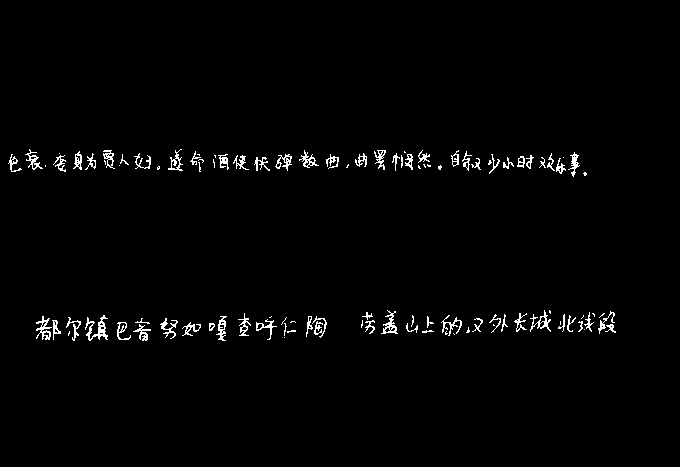 色衰,委身为贾人妇。遂命酒使快弹数曲,曲罢悯然。自叙少小时欢乐事,
都尔镇巴音努如嘎查呼仁陶 劳盖山上的汉外长城北线段